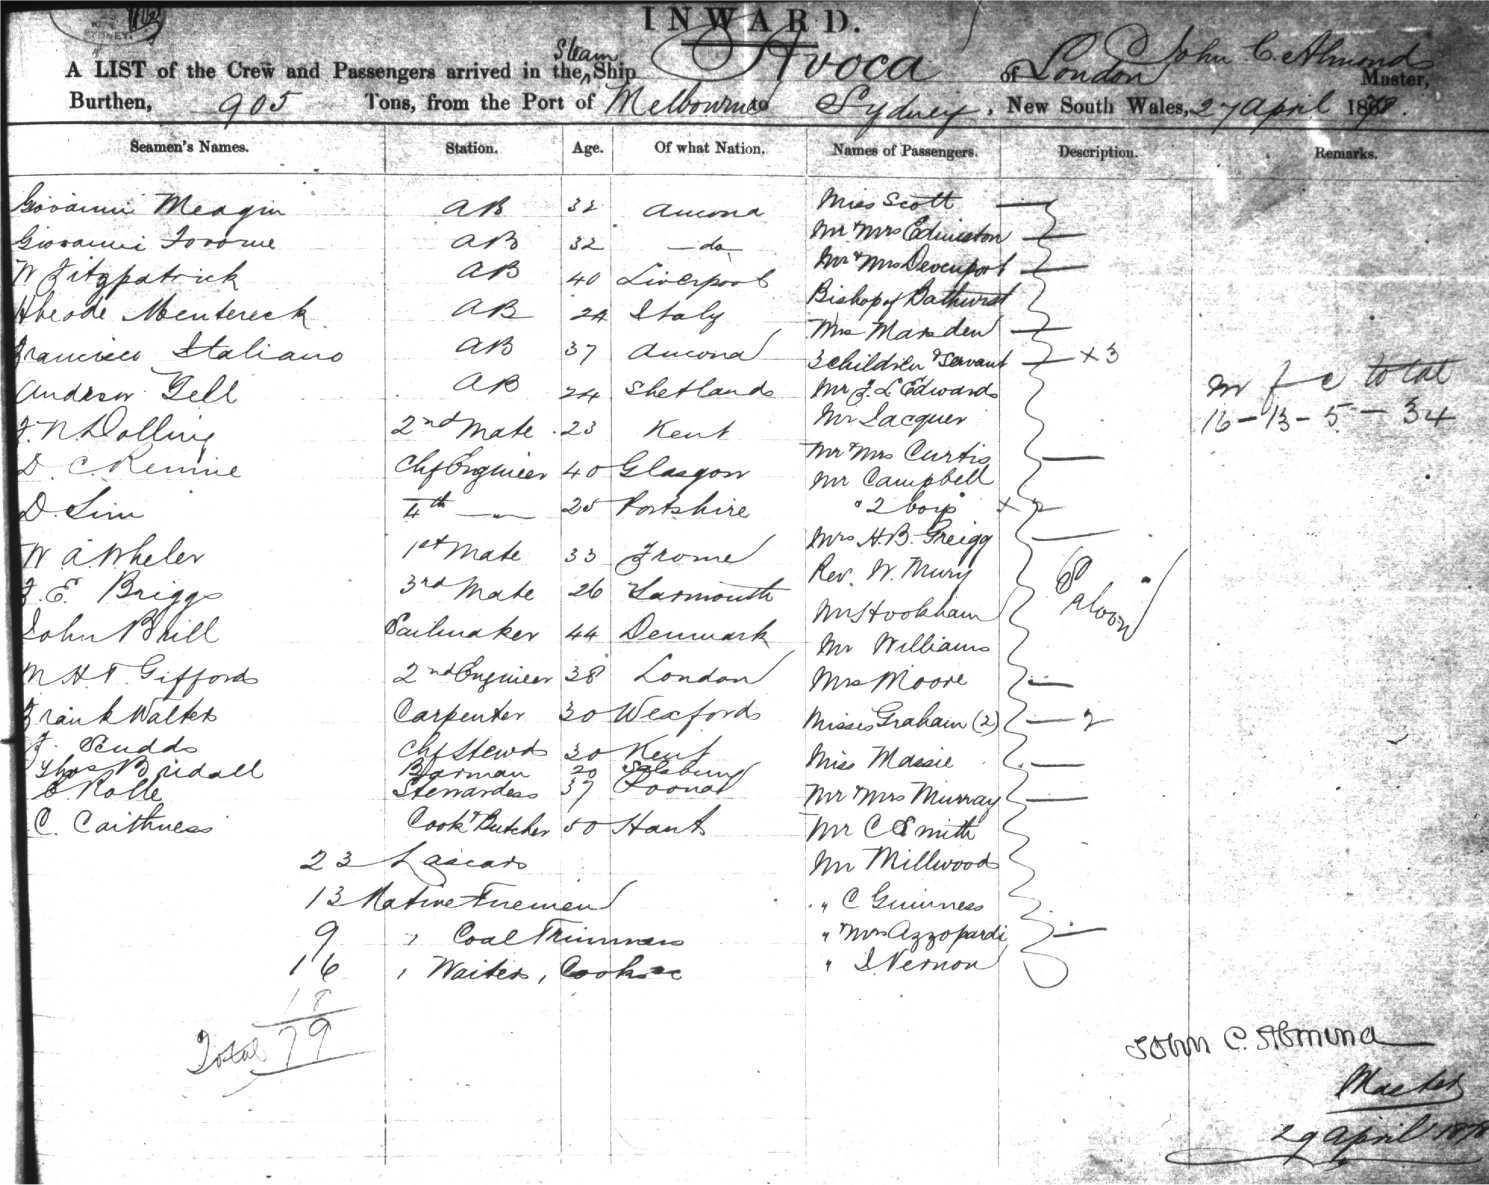 INWARD.
A LIST of the Crew and Passengers arrived in the Steam Ship Avoca of London John C. Almond Master,
Burthen, 905 Tons, from the Port of Melbourne to Sydney, New South Wales, 27 April 1878.
Seamen's Names. Station. Age. Of what Nation. Names of Passengers. Description. Remarks.
Giovanni Meagin AB 32 Ancona Miss Scott —
Giovanni AB 32 — do — Mr & Mrs Edmiston —
W Fitzpatrick AB 40 Liverpool Mr & Mrs Devenport —
AB 24 Italy Bishop of Bathurst
Mrs Marsden —
Francisco Italiano AB 37 Ancona 3 children & Servant — x 3
Andrew Gell AB 24 Shetlands Mr F. L Edwards
m f c total
16 – 13 – 5 – 34
F. N. Dolling 2nd Mate 23 Kent Mr Jacquer
D. C. Rennie Chf Engineer 40 Glasgow Mr Mrs Curtis —
Mr Campbell
D. Sim 4th — 25 " 2 boys x 2
W A Wheler 1st Mate 33 Frome Mrs H. B. Greigg —
F. E. Briggs 3rd Mate 26 Yarmouth Rev. W. Mury
Saloon
John Brill Sailmaker 44 Denmark Mr Hookham
Mr Williams
M H T Gifford 2nd Engineer 38 London Mrs Moore —
Frank Walter Carpenter 30 Wexford Misses Graham (2) — 2
F. Rudds Chf Stewd 30 Kent Miss Massie —
Thos Bridall Barman 20 Salsbury
E Rolle Stewardess 37 Poona Mr & Mrs Murray —
C. Caithness Cook & Butcher 50 Hant Mr C Smith
23 Lascars Mr Millwood
13 Native Firemen " C Guinness
9 " Coal Trimmers " & Mrs Azzopardi —
16 " Waiters, Cooks &c " J. Vernon
18
Total 79
John C. Almond
Master
29 April 1878